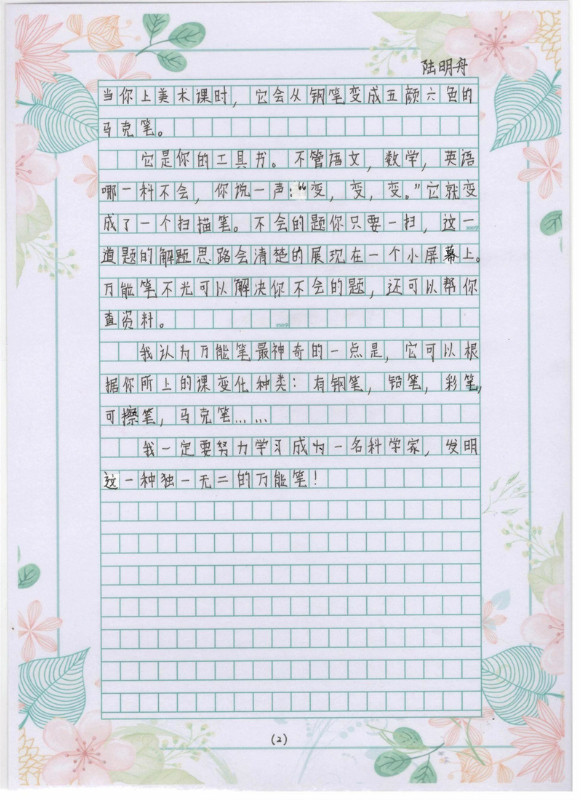 陆明舟
当你上美术课时，它会从钢笔变成五颜六色的
马克笔。
它是你的工具书。不管语文，数学，英语
哪一科不会，你说一声：“变，变，变。”它就变
成了一个扫描笔。不会的题你只要一扫，这一
道题的解题思路会清楚的展现在一个小屏幕上。
万能笔不光可以解决你不会的题，还可以帮你
查资料。
我认为万能笔最神奇的一点是，它可以根
据你所上的课变化种类：有钢笔，铅笔，彩笔，
可擦笔，马克笔……
我一定要努力学习成为一名科学家，发明
这一种独一无二的万能笔！
(2)